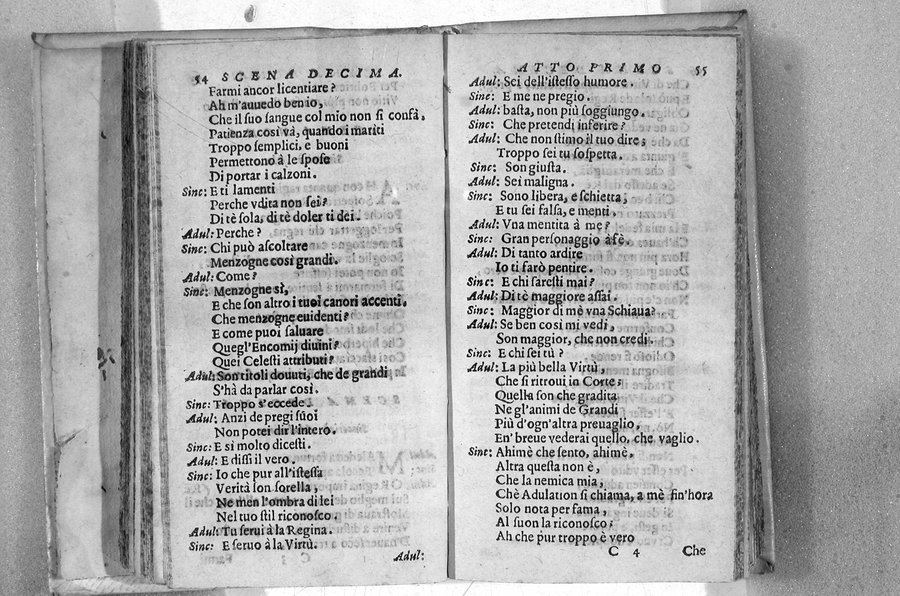 54 SCENA DECIMA.
Farmi ancor licentiare?
Ah m'auuedo ben io,
Che il ſuo ſangue col mio non ſi confà,
Patienza così và, quando i mariti
Troppo ſemplici, e buoni
Permettono à le ſpoſe
Di portar i calzoni.
Sinc: E ti lamenti
Perche vdita non ſei?
Di tè ſola, di tè doler ti dei.
Adul: Perche?
Sinc: Chi può aſcoltare
Menzogne così grandi.
Adul: Come?
Sinc: Menzogne sì,
E che ſon altro i tuoi canori accenti,
Che menzogne euidenti?
E come puoi ſaluare
Quegl'Encomij diuini?
Quei Celeſti attributi?
Adul: Son titoli douuti, che de grandi
S'hà da parlar così.
Sinc: Troppo s'eccede.
Adul: Anzi de pregi ſuoi
Non potei dir l'intero.
Sinc: E si molto diceſti.
Adul: E diſſi il vero.
Sinc: Io che pur all'iſteſſa
Verità ſon ſorella,
Ne men l'ombra di lei
Nel tuo ſtil riconoſco.
Adul: Tu ſerui à la Regina.
Sinc: E ſeruo à la Virtù.
Adul:
ATTO PRIMO 55
Adul: Sei dell'iſteſſo humore.
Sinc: E me ne pregio.
Adul: baſta, non più ſoggiungo.
Sinc: Che pretendi inferire?
Adul: Che non ſtimo il tuo dire;
Troppo ſei tu ſoſpetta.
Sinc: Son giuſta.
Adul: Sei maligna.
Sinc: Sono libera, e ſchietta,
E tu ſei falſa, e menti.
Adul: Vna mentita à me?
Sinc: Gran perſonaggio à fè.
Adul: Di tanto ardire
Io ti farò pentire.
Sinc: E chi ſareſti mai?
Adul: Di tè maggiore aſſai.
Sinc: Maggior di me vna Schiaua?
Adul: Se ben così mi vedi,
Son maggior, che non credi.
Sinc: E chi ſei tù?
Adul: La più bella Virtù,
Che ſi ritroui in Corte;
Quella ſon che gradita
Ne gl'animi de Grandi
Più d'ogn'altra preuaglio,
En' breue vederai quello, che vaglio.
Sinc: Ahimè che ſento, ahimè,
Altra queſta non è,
Che la nemica mia,
Chè Adulation ſi chiama, a mè fin'hora
Solo nota per fama,
Al ſuon la riconoſco;
Ah che pur troppo è vero
C 4 Che